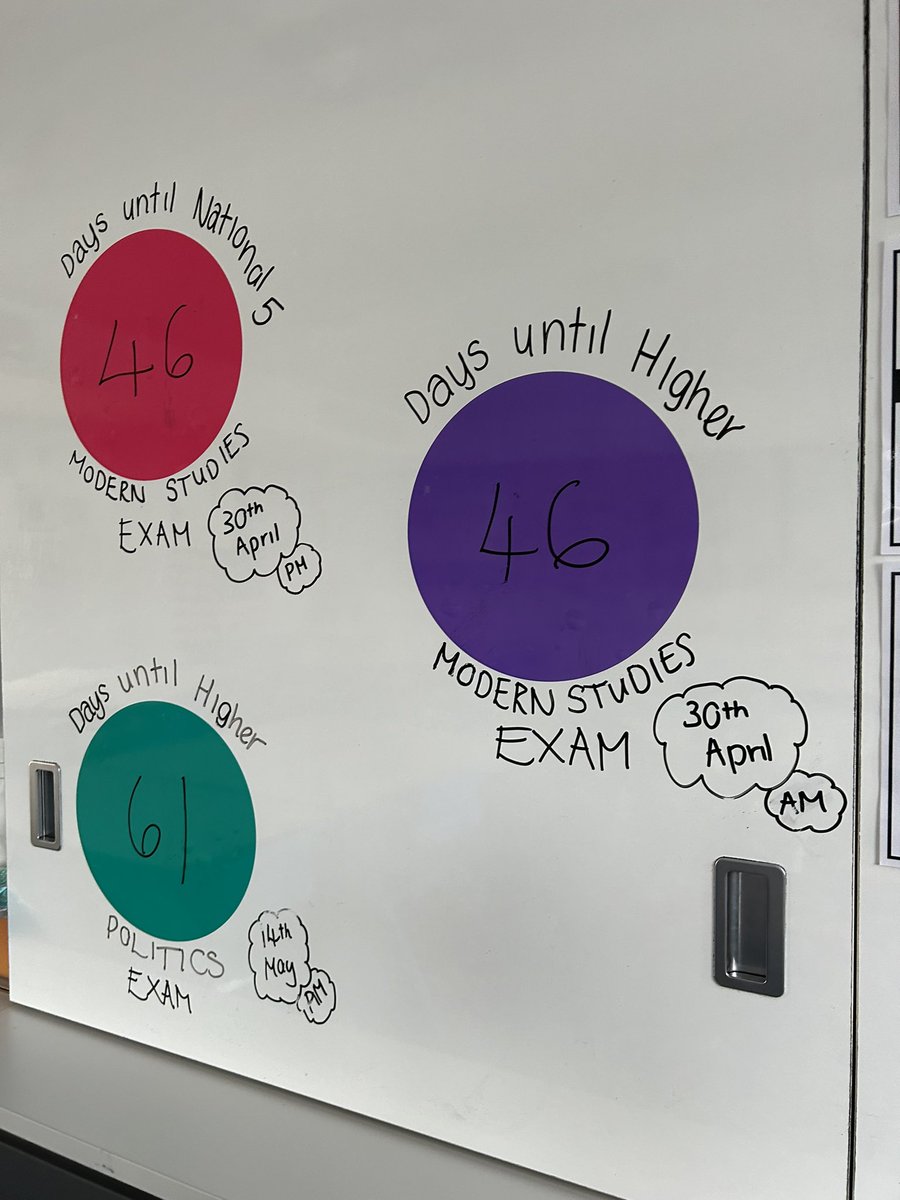 Days until National 5
46
MODERN STUDIES
EXAM
30th
April
PM
Days until Higher
46
MODERN STUDIES
EXAM
30th
April
AM
Days until Higher
61
POLITICS
EXAM
14th
May
PM